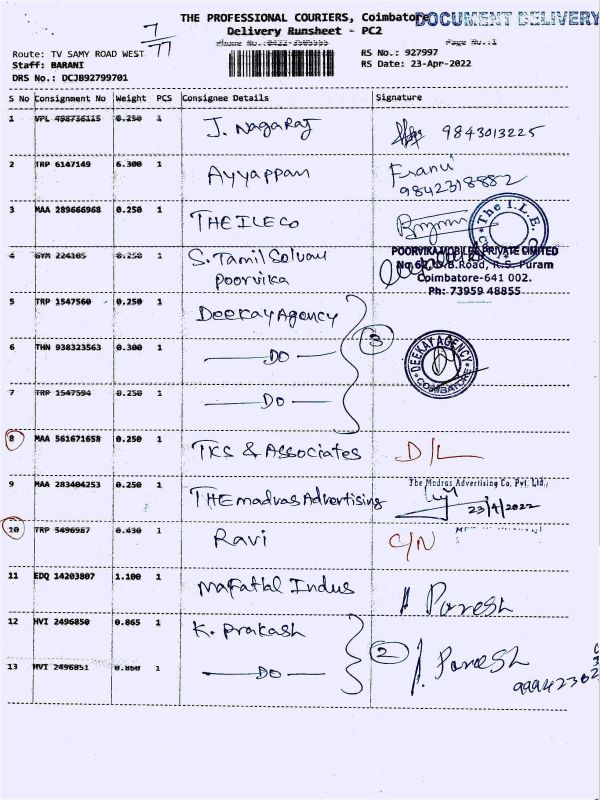 THE PROFESSIONAL COURIERS, Coimbatore
DOCUMENT DELIVERY
Delivery Runsheet - PC2
7/77
Page No.:1
Route: TV SAMY ROAD WEST
RS No.: 927997
Staff: BARANI
RS Date: 23-Apr-2022
DRS No.: DCJB92799701
S No Consignment No Weight PCS Consignee Details Signature
1 VPL 498736115 0.250 1 J. Nagaraj 9843013225
2 TRP 6147149 6.300 1 Ayyappan
9842318882
3 MAA 289666968 0.250 1 THE ILE Co
The I.L.E. Co
4 GYM 224105 0.250 1 S. Tamil Selvan
Poorvika
POORVIKA MOBILES PRIVATE LIMITED
D.B.Road, R.S. Puram
Coimbatore-641 002.
Ph: 73959 48855
5 TRP 1547560 0.250 1 Deekay Agency
6 THN 938323563 0.300 1 — DO —
3
DEEKAY AGENCY
COIMBATORE
7 TRP 1547594 0.250 1 — DO —
8 MAA 561671658 0.250 1 TKS & Associates D/L
9 MAA 283404253 0.250 1 THE madras Advertising
The Madras Advertising Co. Pvt. Ltd.,
23/4/2022
10 TRP 5496967 0.430 1 Ravi C/N
11 EDQ 14203807 1.100 1 Mafatlal Indus Paresh
12 HVI 2496850 0.865 1 K. Prakash
2
13 HVI 2496851 0.860 1 — DO — Paresh